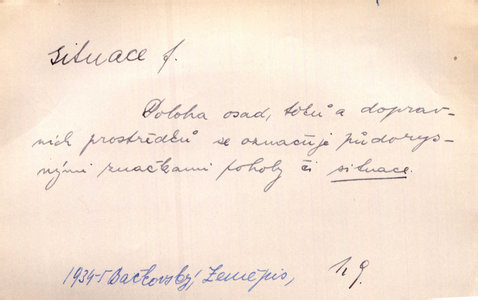 situace f.
Poloha osad, toků a doprav-
ních prostředků se označuje půdorys-
nými značkami polohy či situace.
1934-I Bačkovský, Zeměpis, 49.